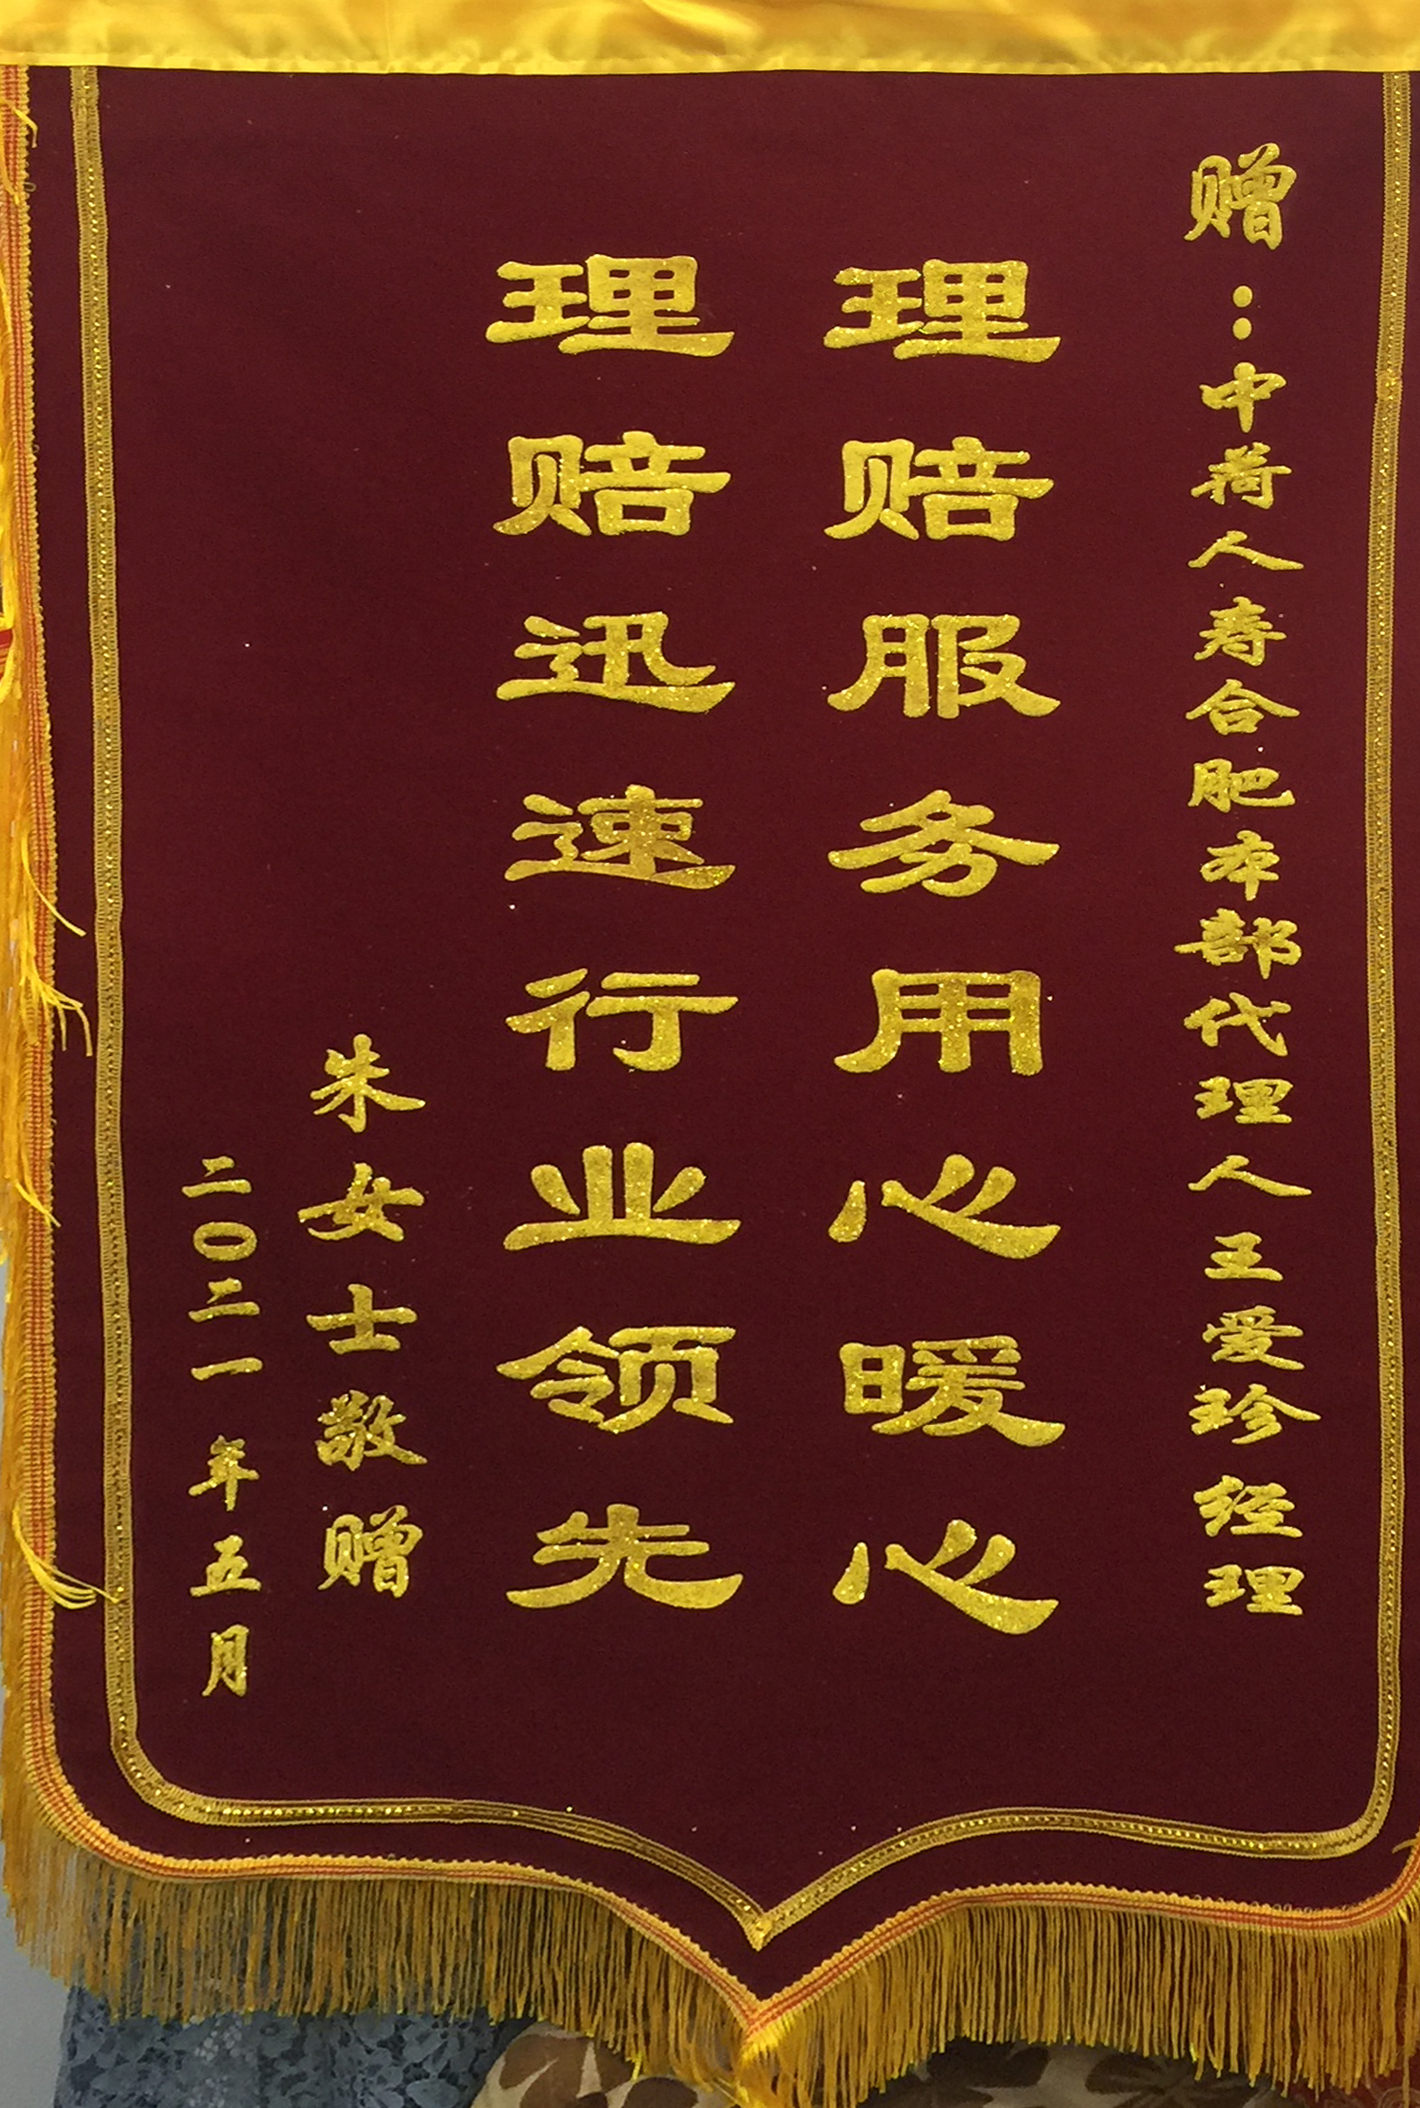 赠：中荷人寿合肥本部代理人王爱珍经理
理赔服务用心暖心
理赔迅速行业领先
朱女士敬赠
二〇二一年五月